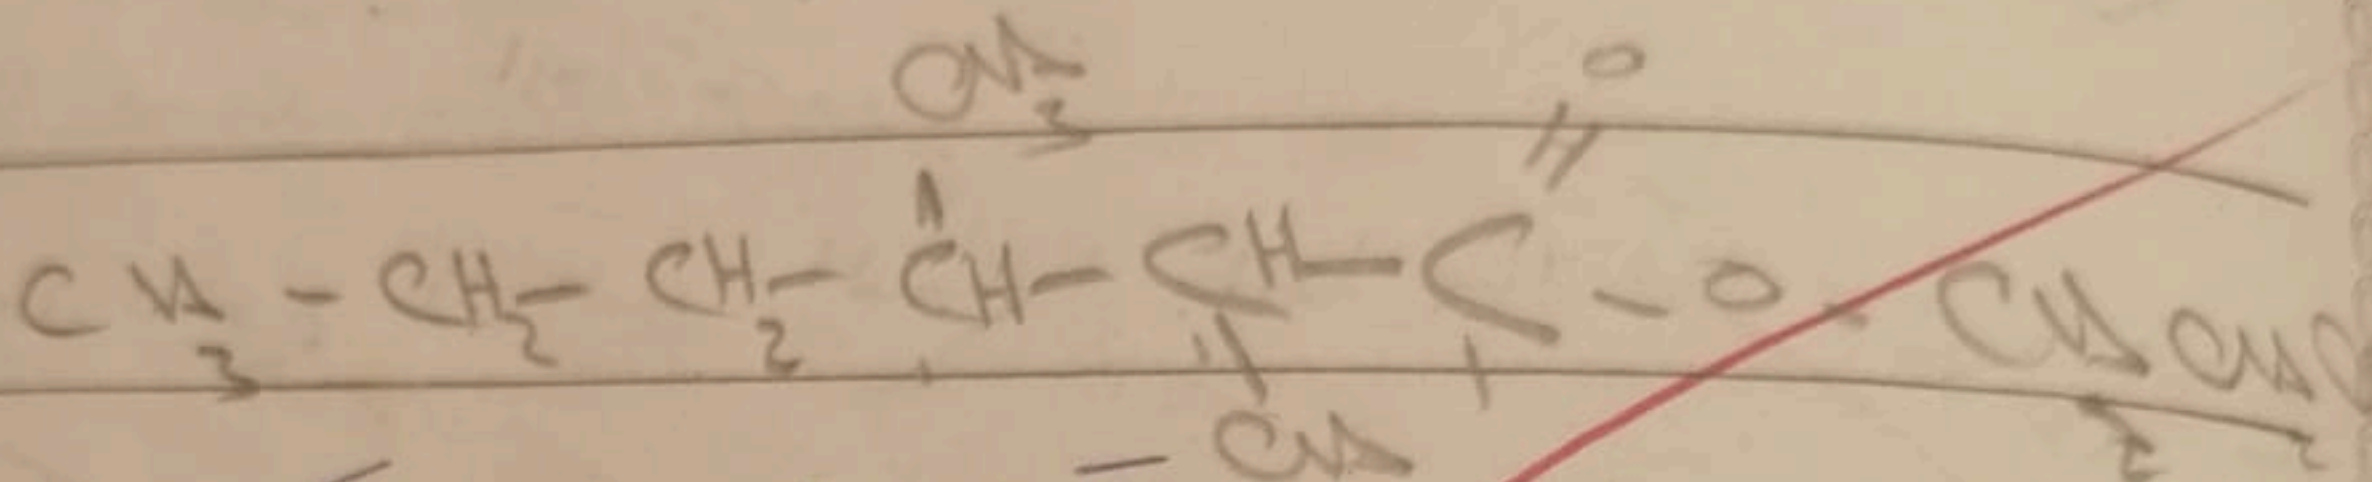 CH3 O
CH3 - CH2 - CH2 - CH - CH - C - O - CH2 CH2
CH